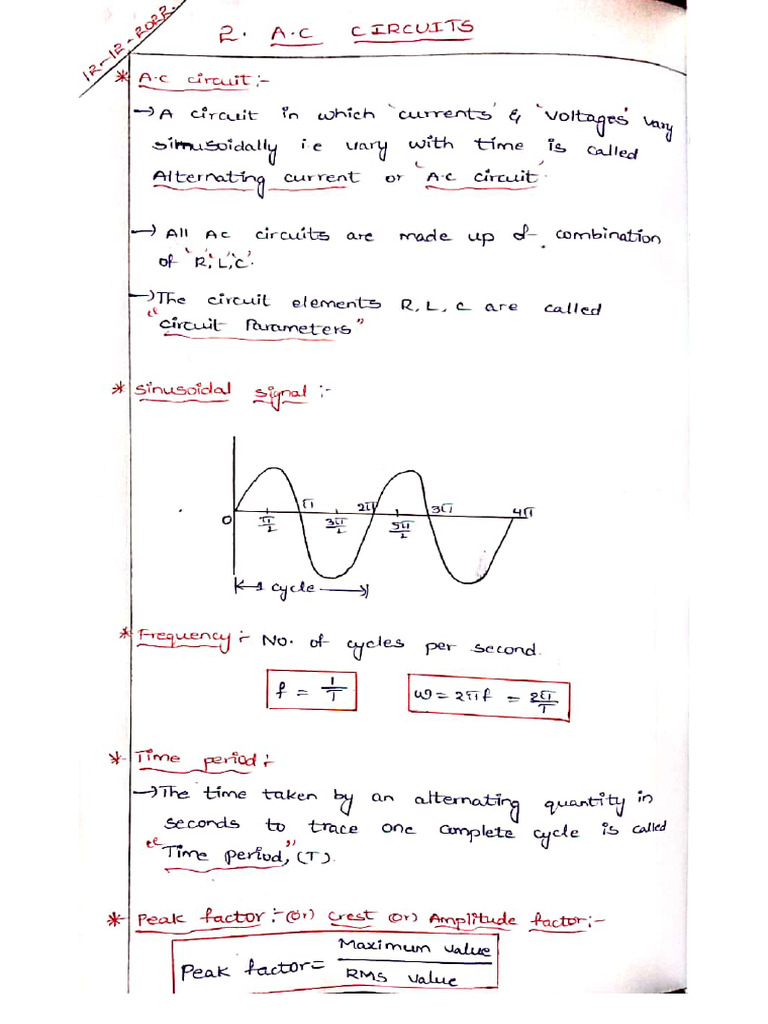 12-12-2022.
2. A.C CIRCUITS
* A.c circuit:-
→ A circuit in which 'currents' & 'voltages' vary
sinusoidally i.e vary with time is called
Alternating current or 'A.c circuit'.
→ All Ac circuits are made up of combination
of 'R', 'L', 'C'.
→ The circuit elements R, L, C are called
"circuit Parameters"
* Sinusoidal signal :-
0 π/2 π 3π/2 2π 5π/2 3π 4π
1 cycle
* Frequency :- No. of cycles per second.
f = 1/T ω = 2πf = 2π/T
* Time period :-
→ The time taken by an alternating quantity in
seconds to trace one complete cycle is called
"Time period", (T).
* Peak factor :- (or) Crest (or) Amplitude factor :-
Peak factor = Maximum value / RMS value